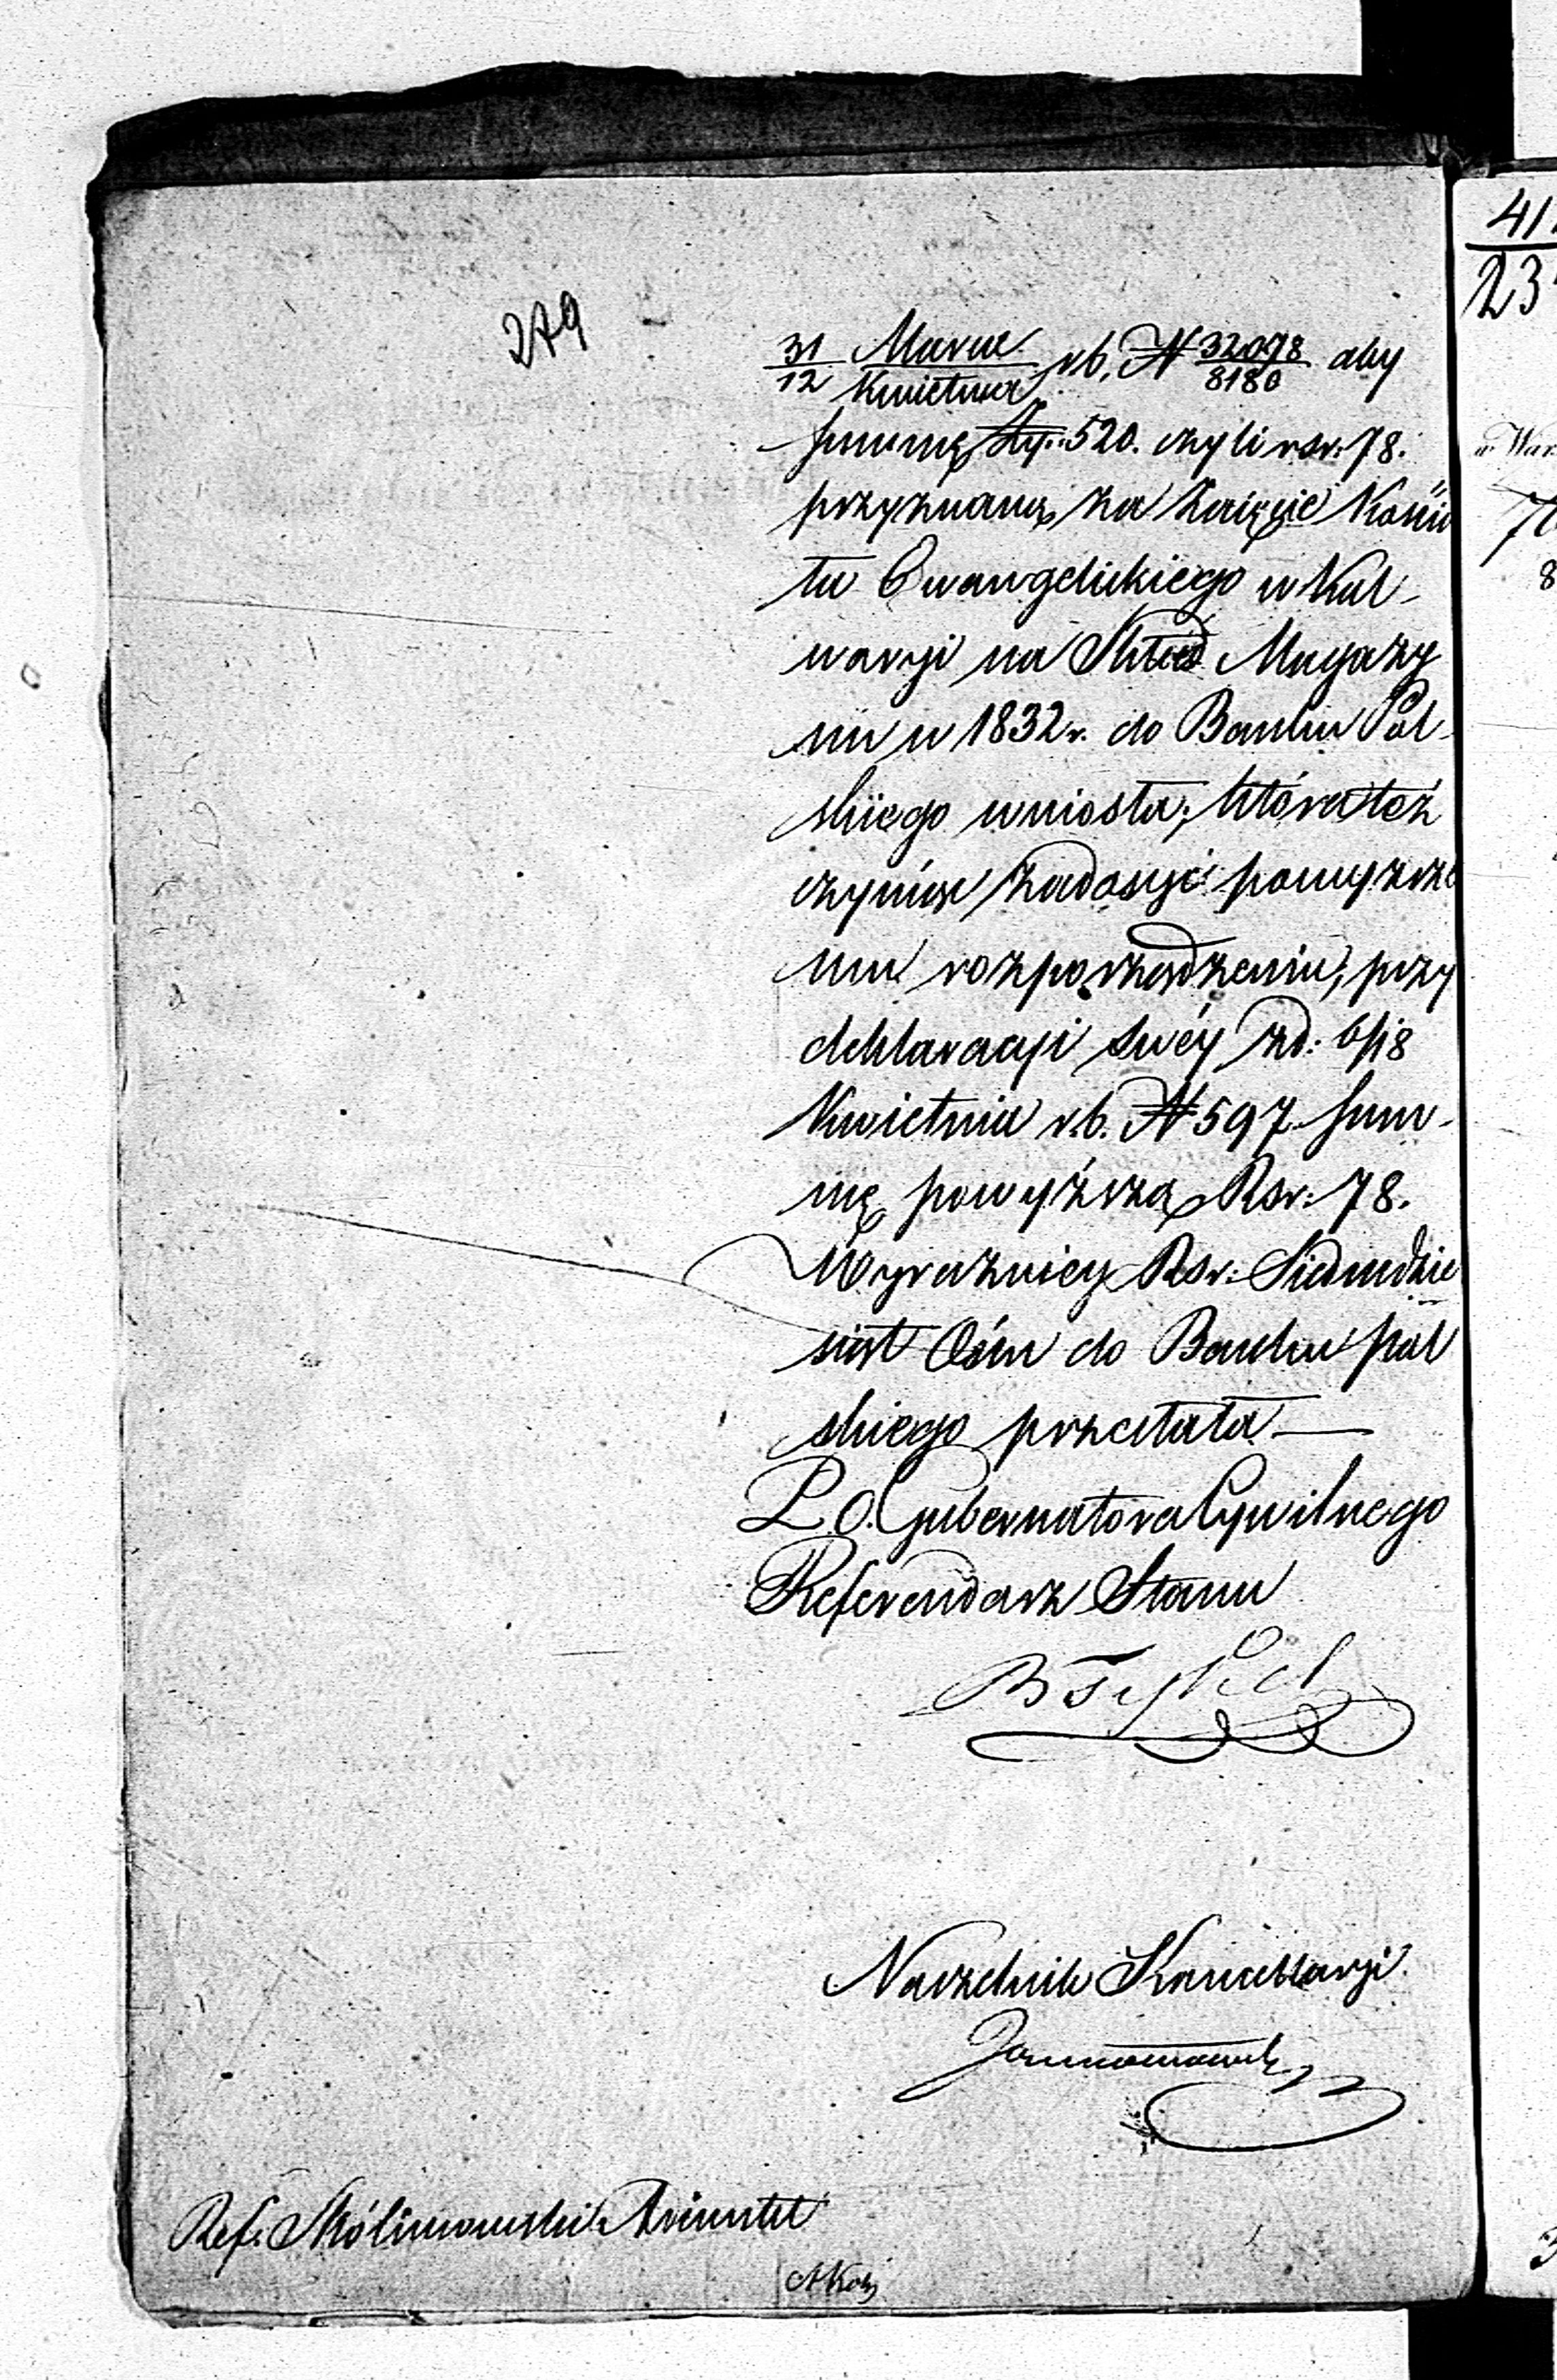 279
31/12 Marca/Kwietnia r.b. N 32098/8180 aby
summę Złp: 520. czyli rsr: 78.
przyznaną za Zajęcie Kośio
ła Ewangelickiego w Kal-
waryi na Skład Magazy
nu w 1832 r. do Banku Pol-
skiego wniosła; która też
czyniąc zadosyć powyższe
mu rozporządzeniu, przy
deklaracyi swéy zd: 6/18
Kwietnia r.b. N 597 sum-
mę powyższą Rsr: 78.
Wyrazniey Rsr: Siedmdzie
siąt Ośm do Banku Pol
skiego przesłała —
P.O. Gubernatora Cywilnego
Referendarz Stanu
Naczelnik Kancellaryi
Ref: Skólimowski
41
23